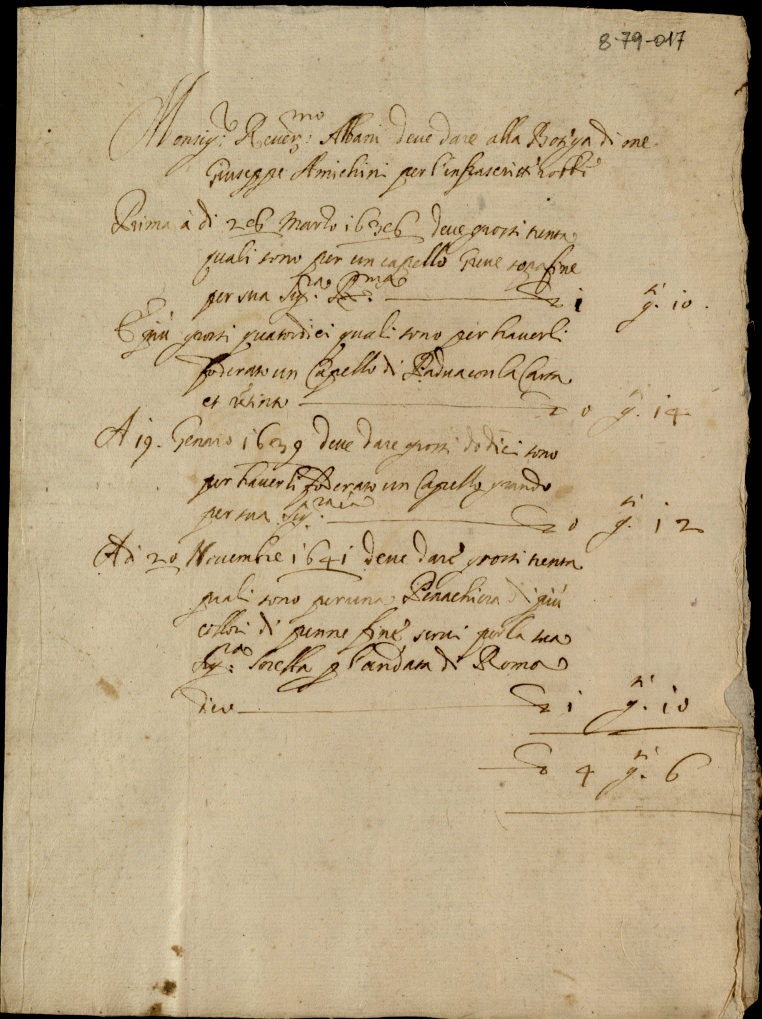 8-79-017
Monsig.r Rever.mo Albani deve dare alla Botega di me
Giuseppe Amichini per l'infrascritti robbe
Prima à di 26 Marzo 1636 deve grossi trenta
quali sono per un capello sopra fine
per sua Sig.ra R.ma 1 g.si 10
E più grossi quatordici quali sono per haverli
foderato un Capello di Padua con la Carta
et 0 g.si 14
A 19. Genaro 1639 deve dare grossi dodici sono
per haverli foderato un Capello grando
per sua Sig.ria 0 g.si 12
Adi 20 Novembre 1641 deve dare grossi trenta
quali sono per una Penachiera di più
collori di penne fine servi per la sua
Sig.ra Sorella p l'andata di Roma
dico 1 g.si 10
4 g.si 6